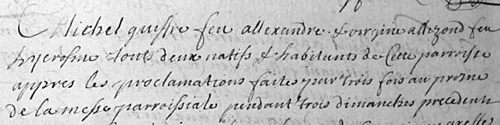 Michel quissre feu allexandre & virgine allezond feu
hyerosme touts deux natifs & habitants de Cette parroisse
appres les proclamations faite pour trois fois au prosne
de la messe parroissiale pendant trois dimanches precedent